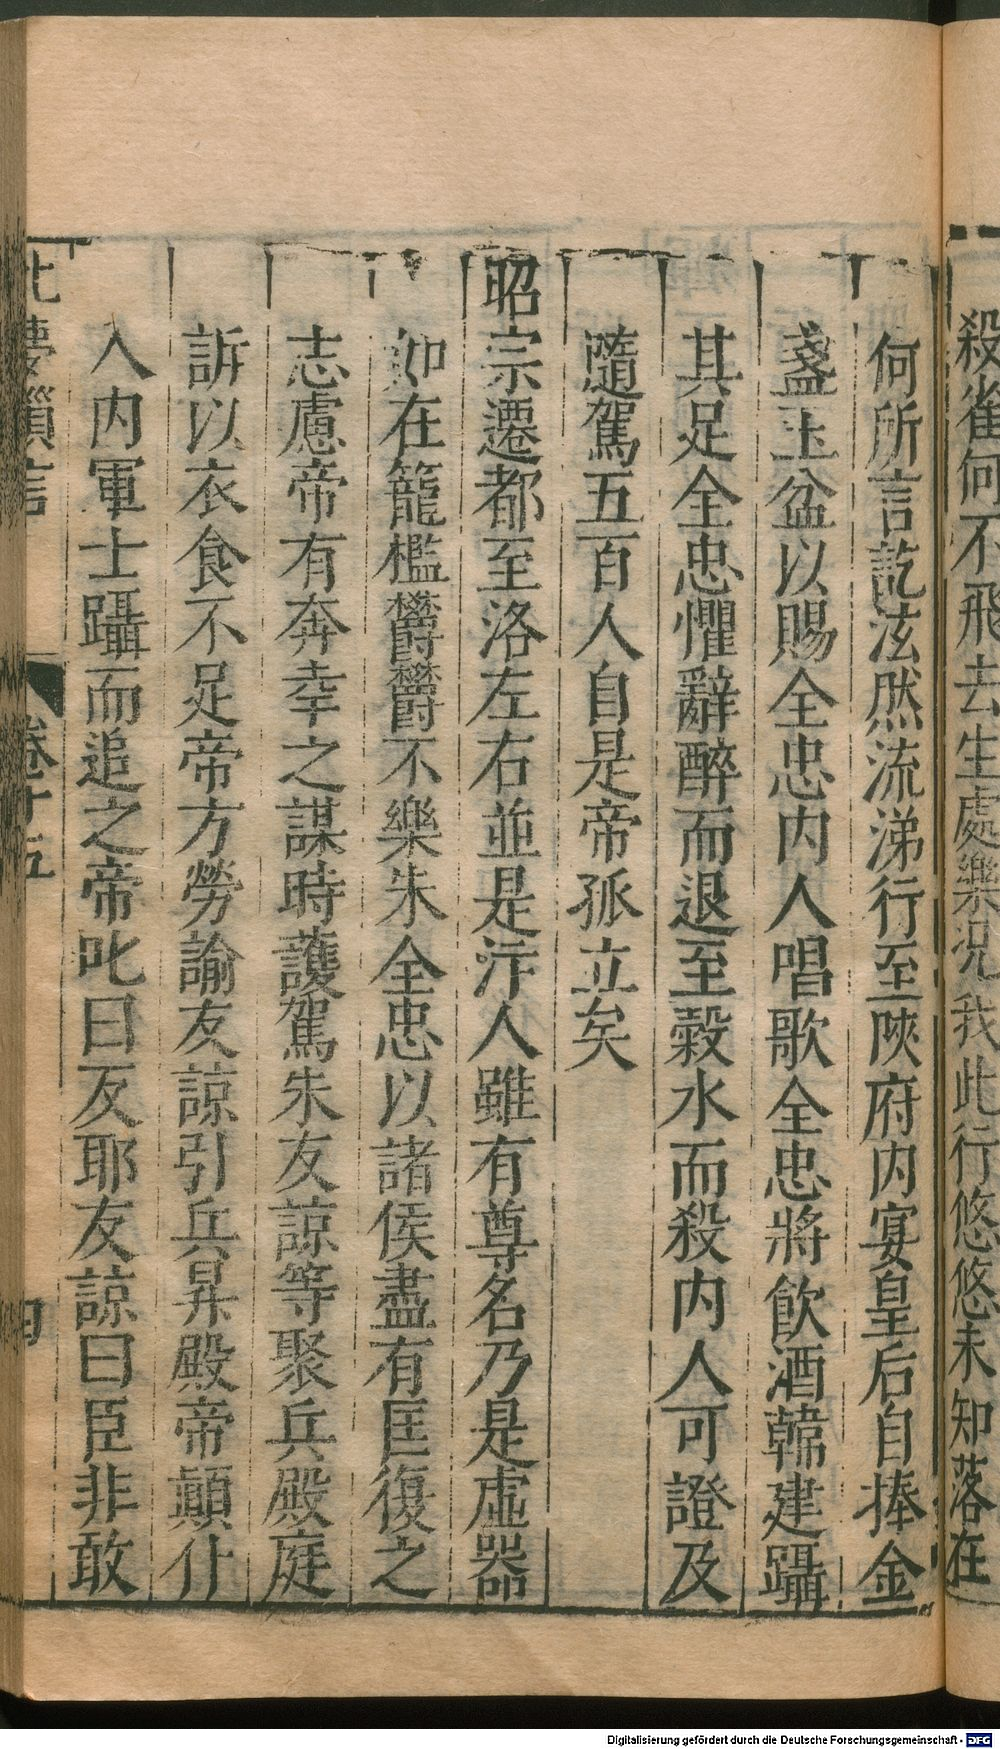 殺雀何不飛去生處樂況我此行悠悠未知落在
何所言訖泫然流涕行至陜府內宴皇后自捧金
盞玉盆以賜全忠內人唱歌全忠將飲酒韓建躡
其足全忠懼辭醉而退至穀水而殺內人可證及
隨駕五百人自是帝孤立矣
昭宗遷都至洛左右並是汴人雖有尊名乃是虛器
如在籠檻鬱鬱不樂朱全忠以諸侯盡有匡復之
志慮帝有奔幸之謀時護駕朱友諒等聚兵殿庭
訴以衣食不足帝方勞諭友諒引兵昇殿帝顛仆
入內軍士躡而追之帝叱曰反耶友諒曰臣非敢
北夢瑣言
卷十五
四
Digitalisierung gefördert durch die Deutsche Forschungsgemeinschaft - DFG